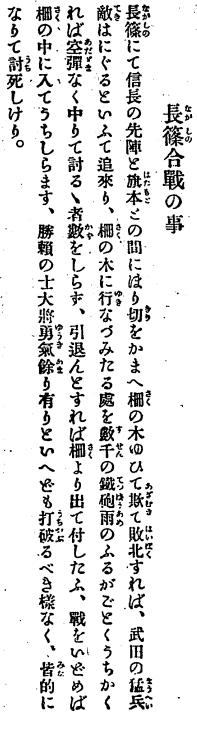 長篠合戰の事
長篠にて信長の先陣と旗本との間にはり切をかまへ柵の木ゆひて欺て敗北すれば、武田の猛兵
敵はにぐるといふて追來り、柵の木に行なづみたる處を數千の鐵砲雨のふるがごとくうちかく
れば空彈なく中りて討るゝ者數をしらず、引退んとすれば柵より出て付したふ、戰をいどめば
柵の中に入てうちしらます、勝賴の士大將勇氣餘り有りといへども打破るべき樣なく、皆的に
なりて討死しけり。